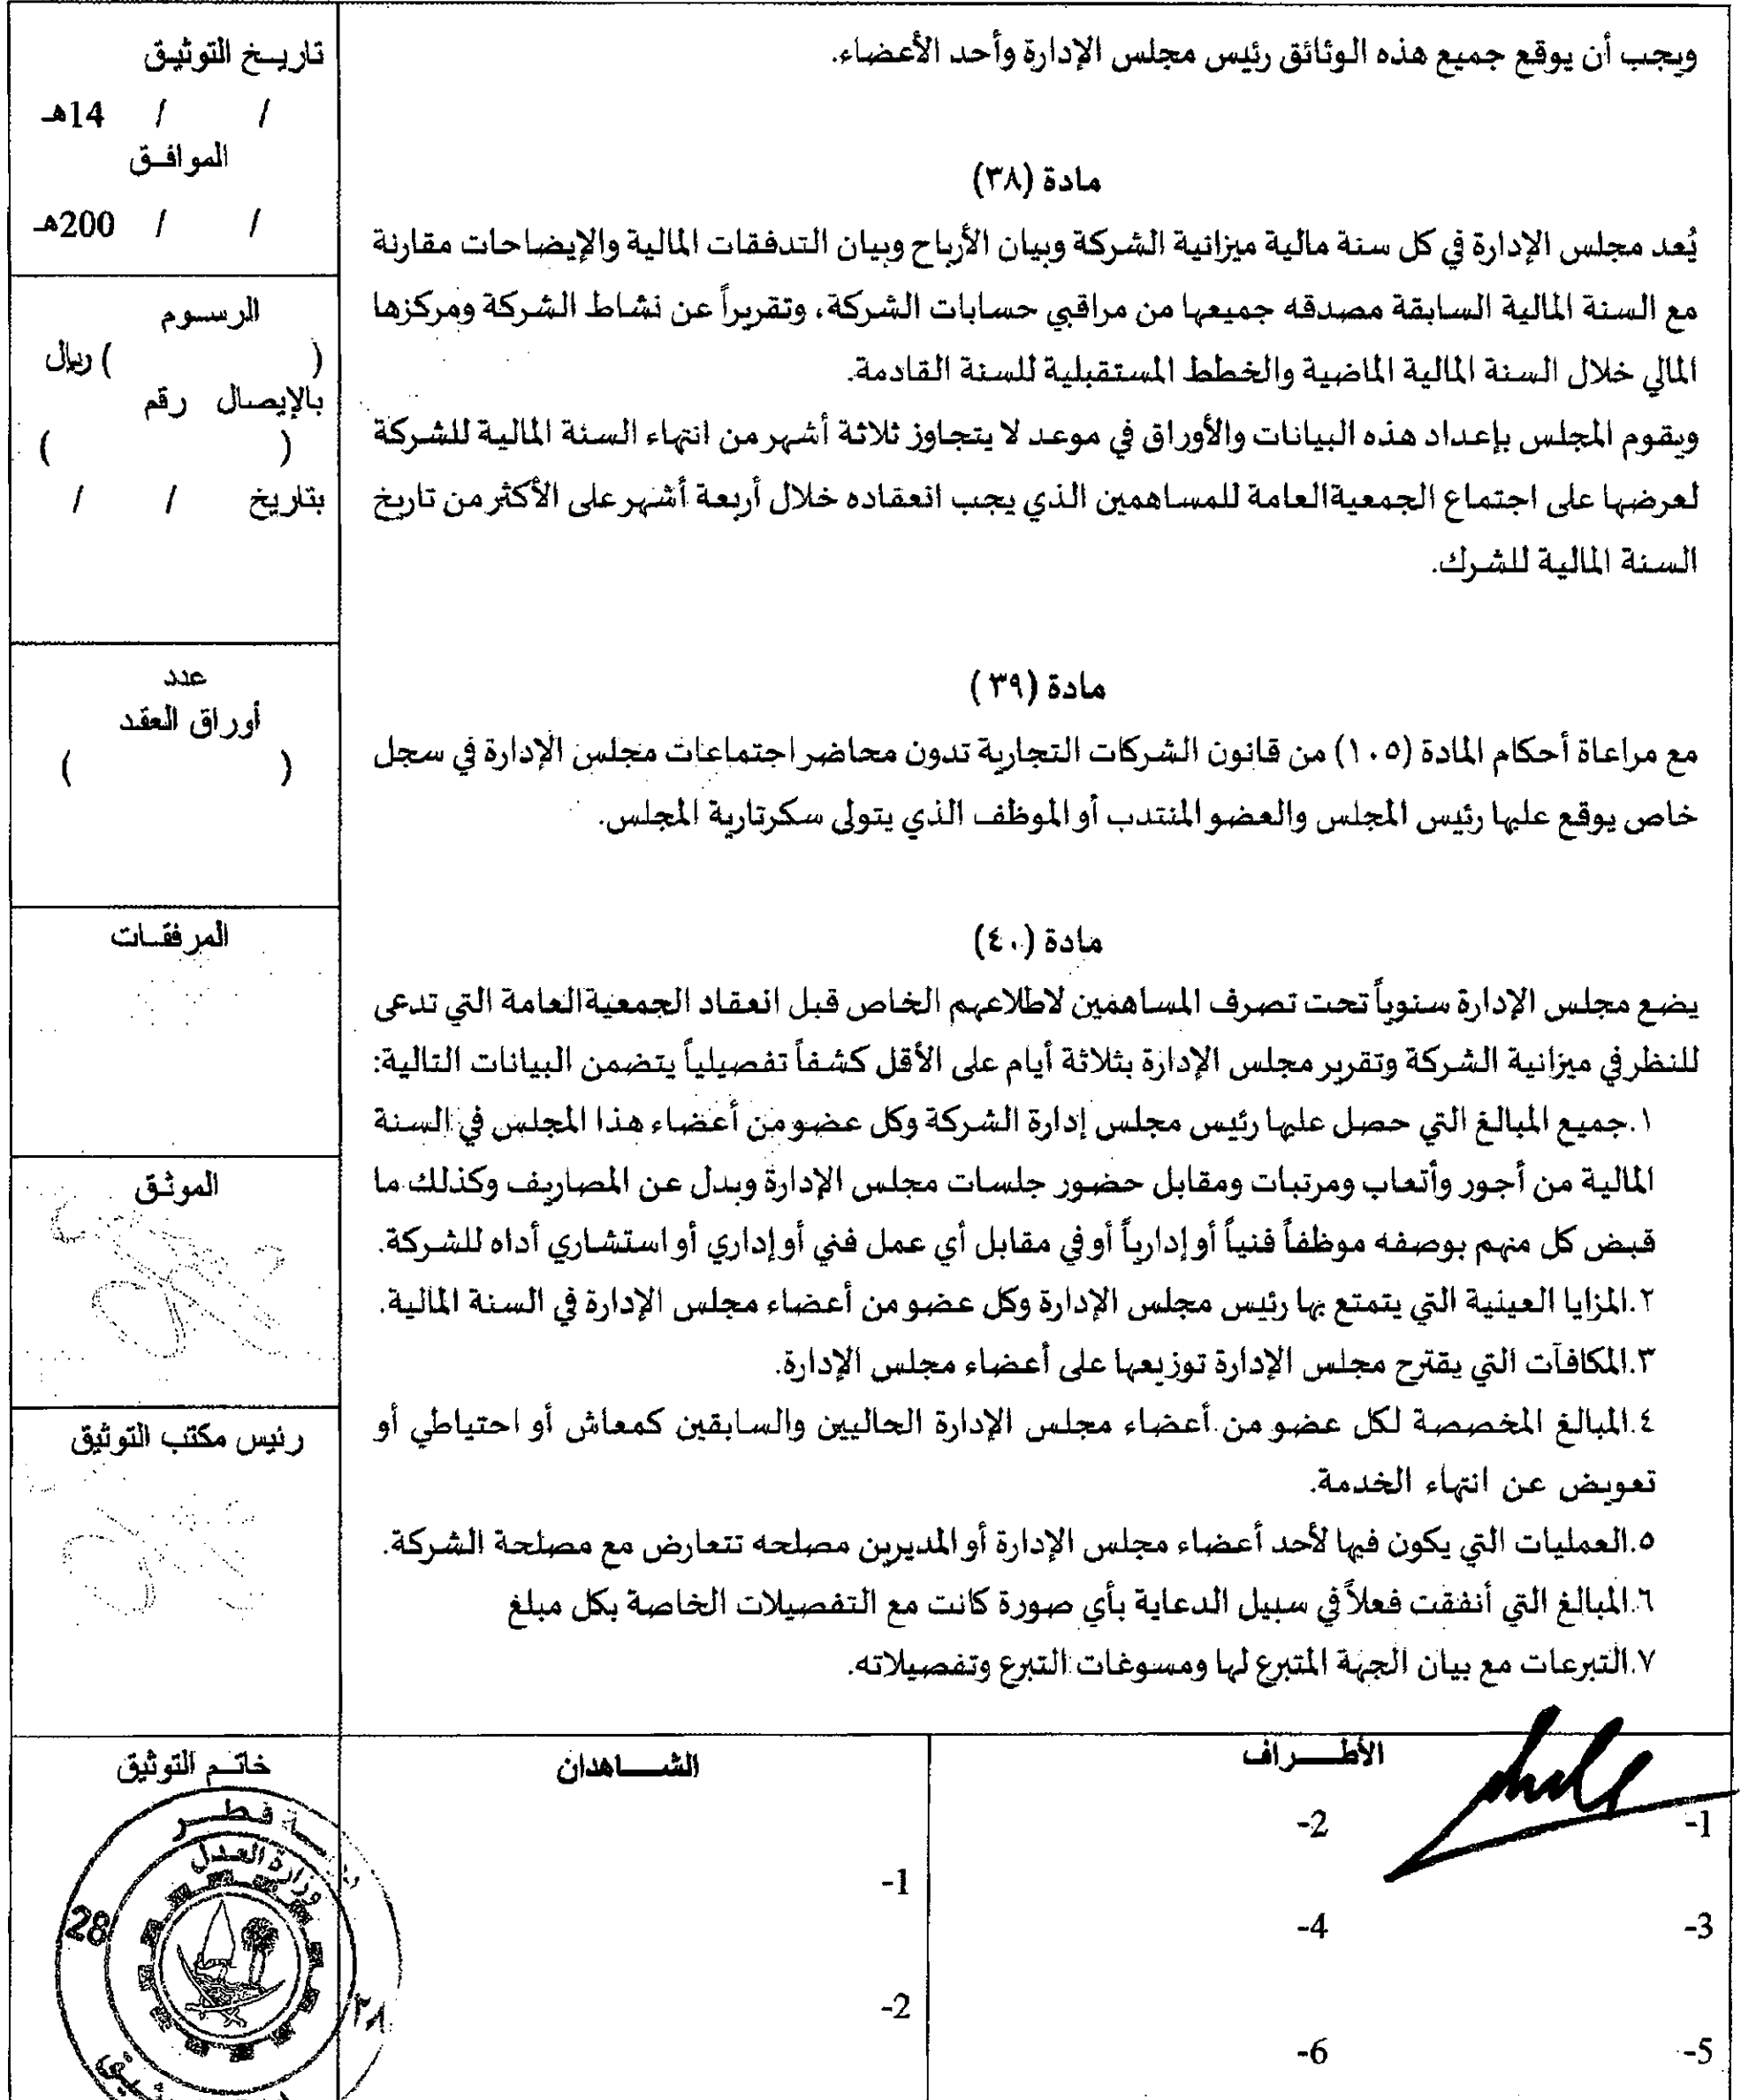 ويجب أن يوقع جميع هذه الوثائق رئيس مجلس الإدارة وأحد الأعضاء.
مادة (٣٨)
يُعد مجلس الإدارة في كل سنة مالية ميزانية الشركة وبيان الأرباح وبيان التدفقات المالية والإيضاحات مقارنة
مع السنة المالية السابقة مصدقه جميعها من مراقبي حسابات الشركة، وتقريراً عن نشاط الشركة ومركزها
المالي خلال السنة المالية الماضية والخطط المستقبلية للسنة القادمة.
ويقوم المجلس بإعداد هذه البيانات والأوراق في موعد لا يتجاوز ثلاثة أشهر من انتهاء السنة المالية للشركة
لعرضها على اجتماع الجمعيةالعامة للمساهمين الذي يجب انعقاده خلال أربعة أشهر على الأكثر من تاريخ
السنة المالية للشرك.
مادة (٣٩ )
مع مراعاة أحكام المادة (١٠٥) من قانون الشركات التجارية تدون محاضر اجتماعات مجلس الإدارة في سجل
خاص يوقع عليها رئيس المجلس والعضو المنتدب أو الموظف الذي يتولى سكرتارية المجلس.
مادة (٤٠)
يضع مجلس الإدارة سنوياً تحت تصرف المساهمين لاطلاعهم الخاص قبل انعقاد الجمعيةالعامة التي تدعى
للنظر في ميزانية الشركة وتقرير مجلس الإدارة بثلاثة أيام على الأقل كشفاً تفصيلياً يتضمن البيانات التالية:
١.جميع المبالغ التي حصل عليها رئيس مجلس إدارة الشركة وكل عضو من أعضاء هذا المجلس في السنة
المالية من أجور وأتعاب ومرتبات ومقابل حضور جلسات مجلس الإدارة وبدل عن المصاريف وكذلك ما
قبض كل منهم بوصفه موظفاً فنياً أو إدارياً أو في مقابل أي عمل فني أو إداري أو استشاري أداه للشركة.
٢.المزايا العينية التي يتمتع بها رئيس مجلس الإدارة وكل عضو من أعضاء مجلس الإدارة في السنة المالية.
٣.المكافآت التي يقترح مجلس الإدارة توزيعها على أعضاء مجلس الإدارة.
٤.المبالغ المخصصة لكل عضو من أعضاء مجلس الإدارة الحاليين والسابقين كمعاش أو احتياطي أو
تعويض عن انتهاء الخدمة.
٥.العمليات التي يكون فيها لأحد أعضاء مجلس الإدارة أو المديرين مصلحه تتعارض مع مصلحة الشركة.
٦.المبالغ التي أنفقت فعلاً في سبيل الدعاية بأي صورة كانت مع التفصيلات الخاصة بكل مبلغ
٧.التبرعات مع بيان الجهة المتبرع لها ومسوغات التبرع وتفصيلاته.
تاريخ التوثيق
/ / 14هـ
الموافق
/ / 200هـ
الرسوم
( ) ريال
بالإيصال رقم
( )
بتاريخ / /
عدد
أوراق العقد
( )
المرفقات
الموثق
رئيس مكتب التوثيق
الأطراف
-1
-2
-3
-4
-5
-6
الشاهدان
-1
-2
خاتم التوثيق
دولة قطر
وزارة العدل
28
٢٨